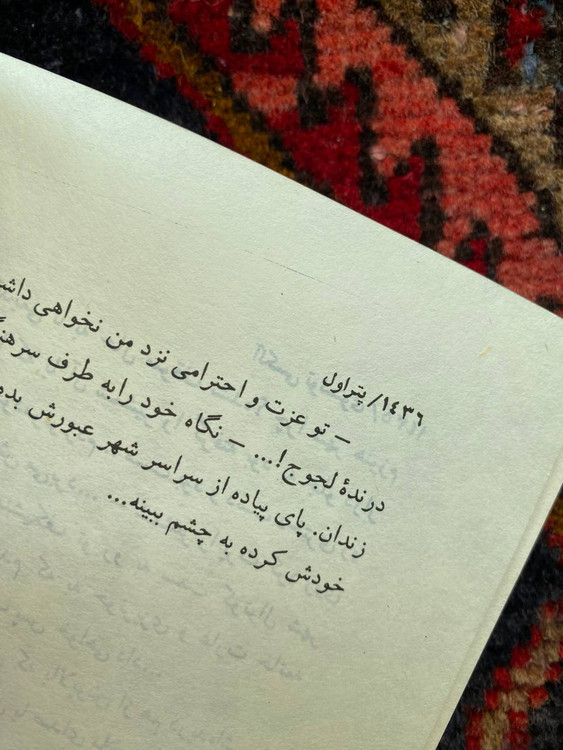 ۱۴۳۶/ پتر اول
– تو عزت و احترامی نزد من نخواهی
درندهٔ لجوج!... – نگاه خود را به طرف
زندان. پای پیاده از سراسر شهر عبورش
خودش کرده به چشم ببینه...